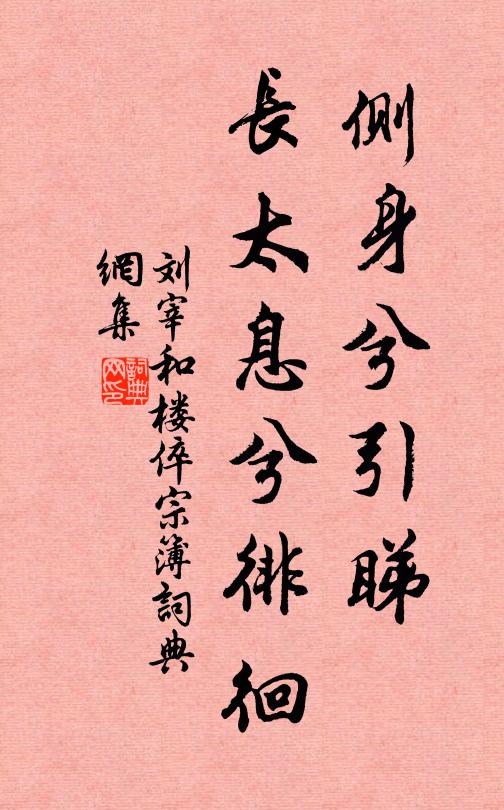 側身兮引睇
長太息兮徘徊
刘宰和楼倅宗簿詞典
網集
詞典
网印